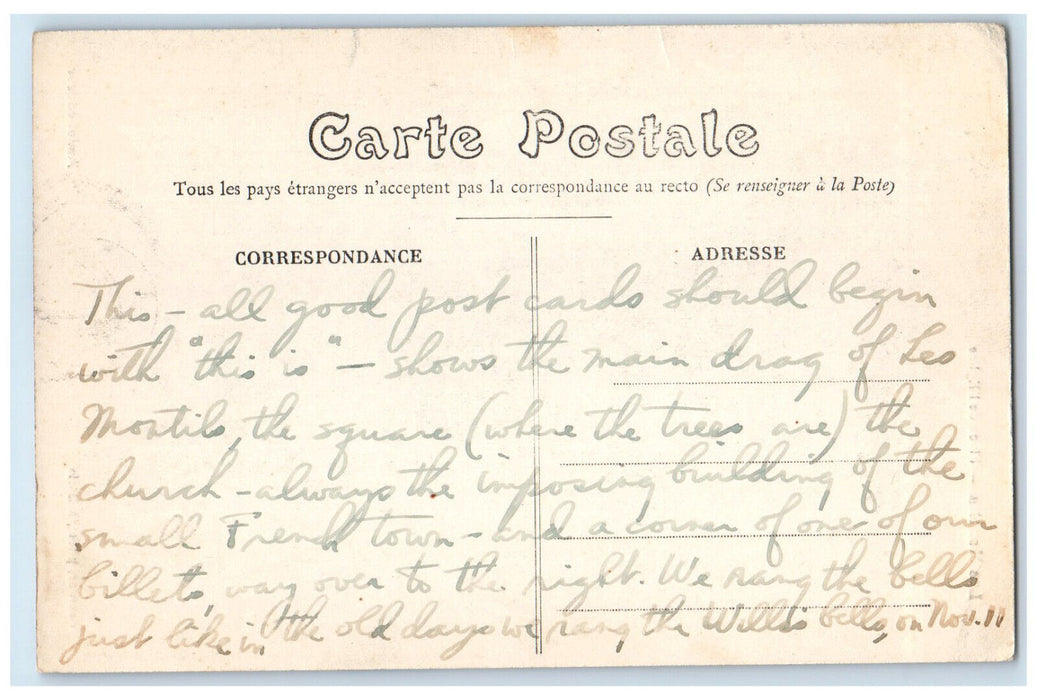 Carte Postale
Tous les pays étrangers n'acceptent pas la correspondance au recto (Se renseigner à la Poste)
CORRESPONDANCE
ADRESSE
This - all good post cards should begin
with "this is" - shows the main drag of Les
Montils, the square (where the trees are) the
church - always the imposing building of the
small French town - and a corner of one of our
billets, way over to the right. We rang the bells
just like in the old days we rang the Willis bells, on Nov. 11